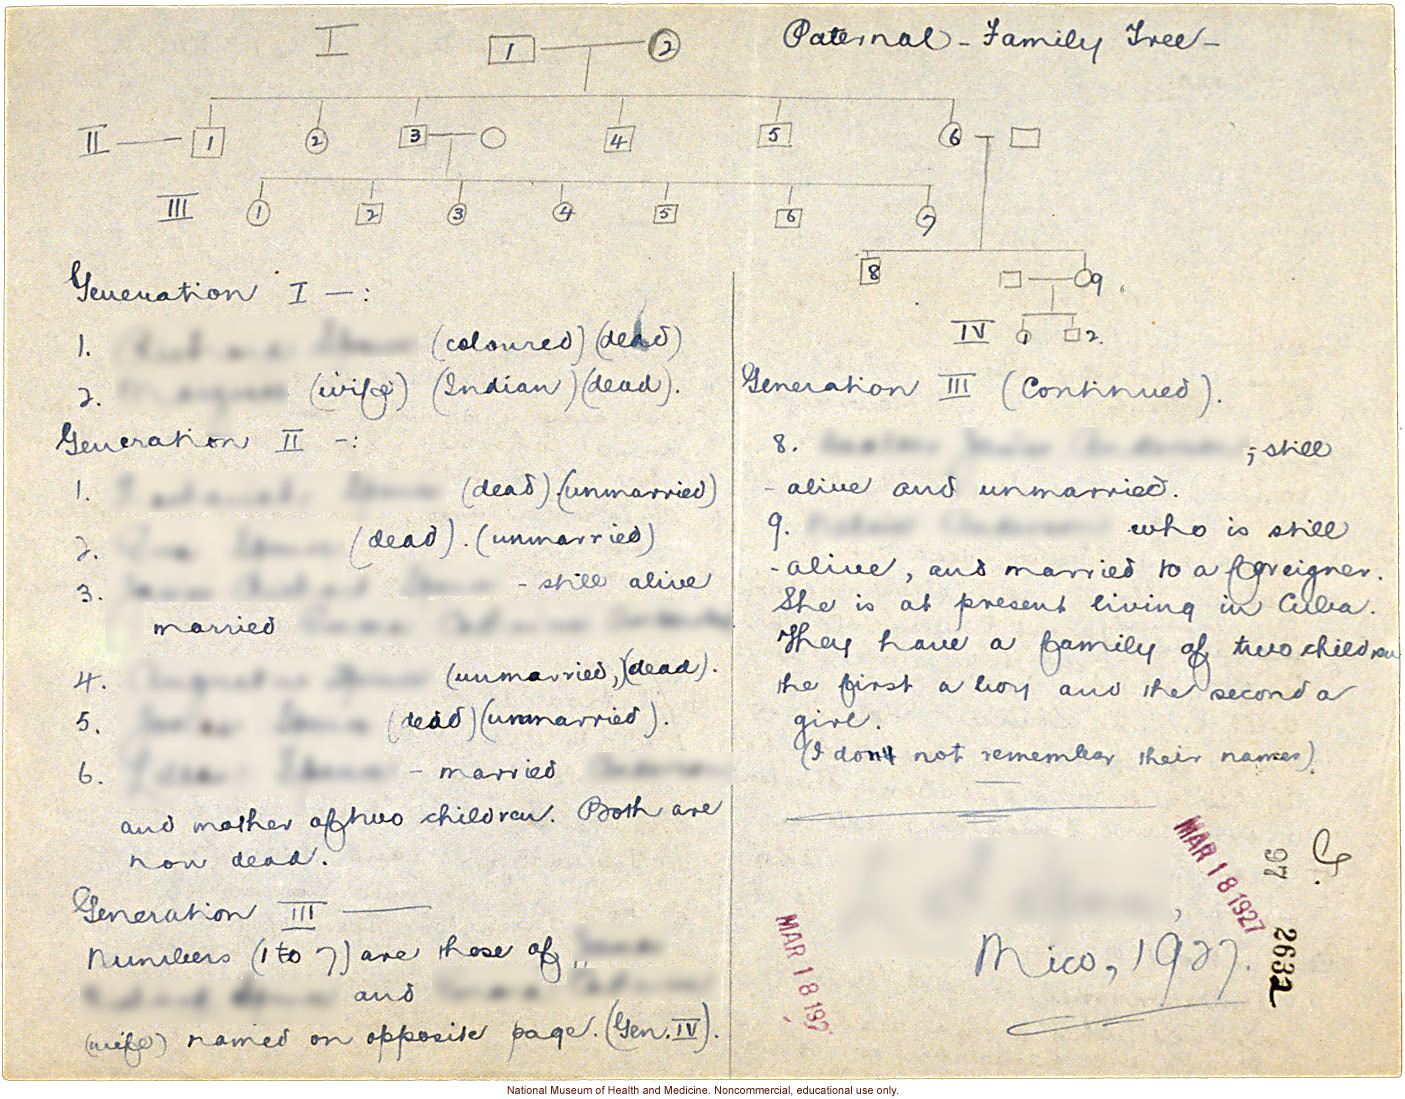 I 1 2 Paternal - Family Tree -
II 1 2 3 4 5 6
III 1 2 3 4 5 6 7
8 9
IV 1 2.
Generation I -:
1. (coloured) (dead)
2. (wife) (Indian) (dead).
Generation II -:
1. (dead) (unmarried)
2. (dead). (unmarried)
3. - still alive
married
4. (unmarried,) (dead).
5. (dead) (unmarried).
6. - married
and mother of two children. Both are
now dead.
Generation III
Numbers (1 to 7) are those of
and
(wife) named on opposite page. (Gen. IV).
Generation III (Continued).
8. ; still
- alive and unmarried.
9. who is still
- alive, and married to a foreigner.
She is at present living in Cuba.
They have a family of two children
the first a boy and the second a
girl.
(I don't not remember their names)
Mico, 1927.
MAR 18 1927
MAR 18 192
97
2632
National Museum of Health and Medicine. Noncommercial, educational use only.